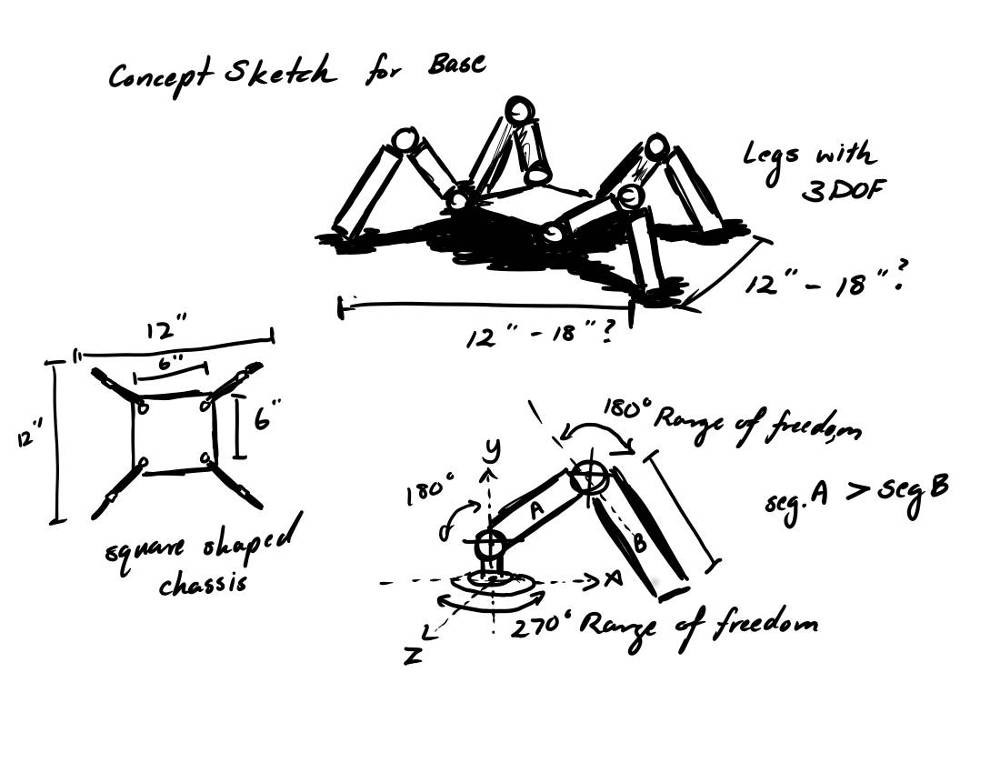 Concept Sketch for Base
Legs with
3DOF
12" - 18"?
12" - 18"?
12"
6"
12"
6"
square shaped
chassis
180° Range of freedom
180°
y
A
B
seg. A > seg B
X
Z
270° Range of freedom